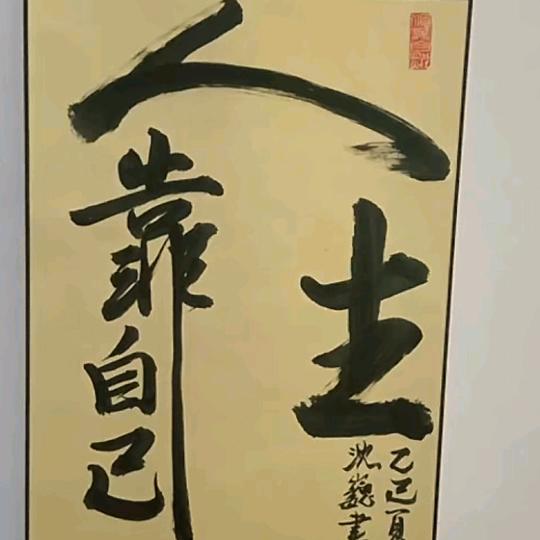 人生
靠自己
乙巳夏
沈巍書